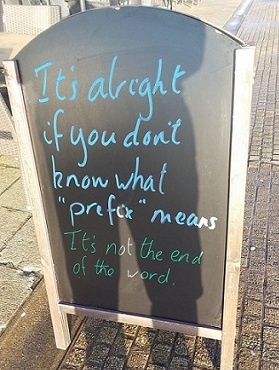 It's alright
if you don't
know what
"prefix" means
It's not the end
of the word.